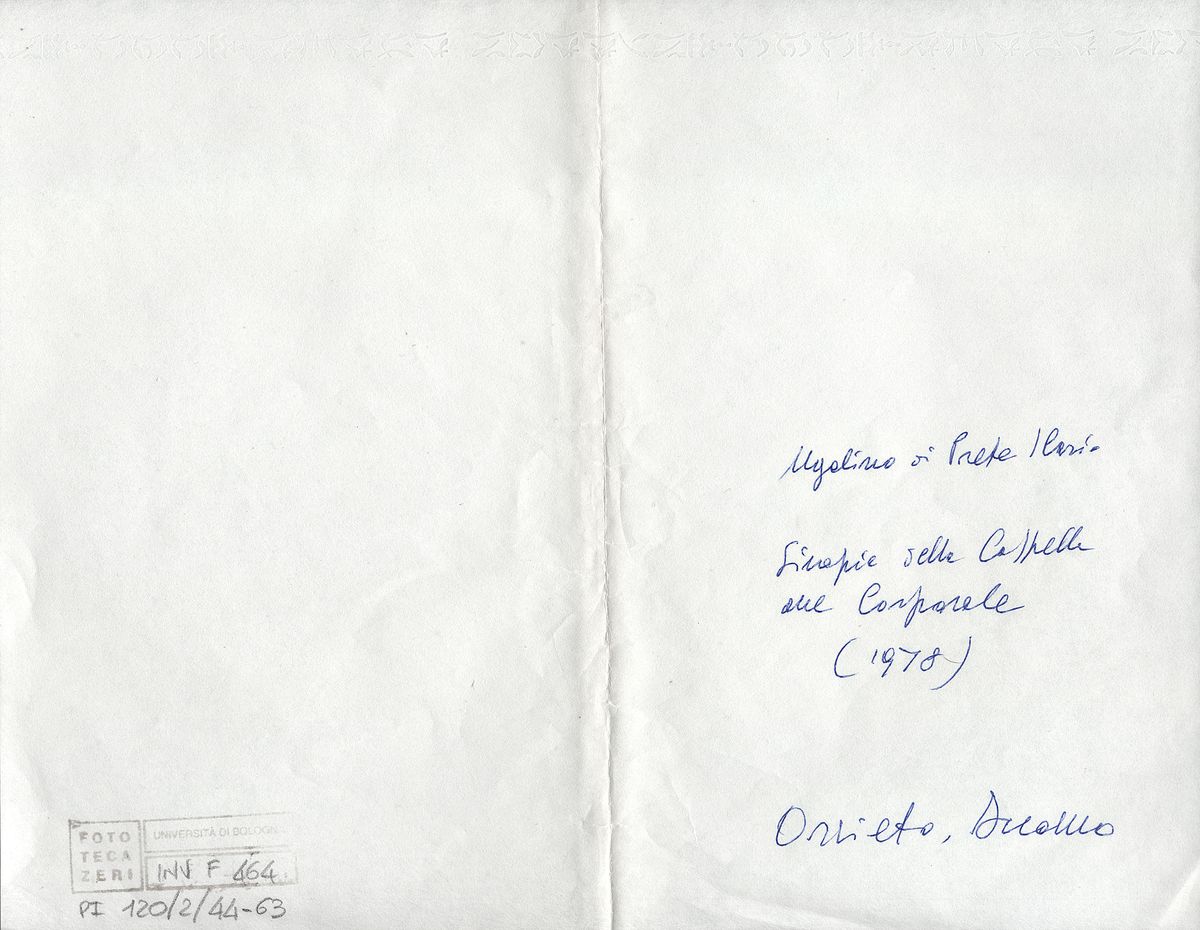 Ugolino di Prete Ilario
Sinopie della Cappella
del Corporale
(1978)
Orvieto, Duomo
FOTO
TECA
ZERI
UNIVERSITÀ DI BOLOGN
INV F 464
PI 120/2/44-63